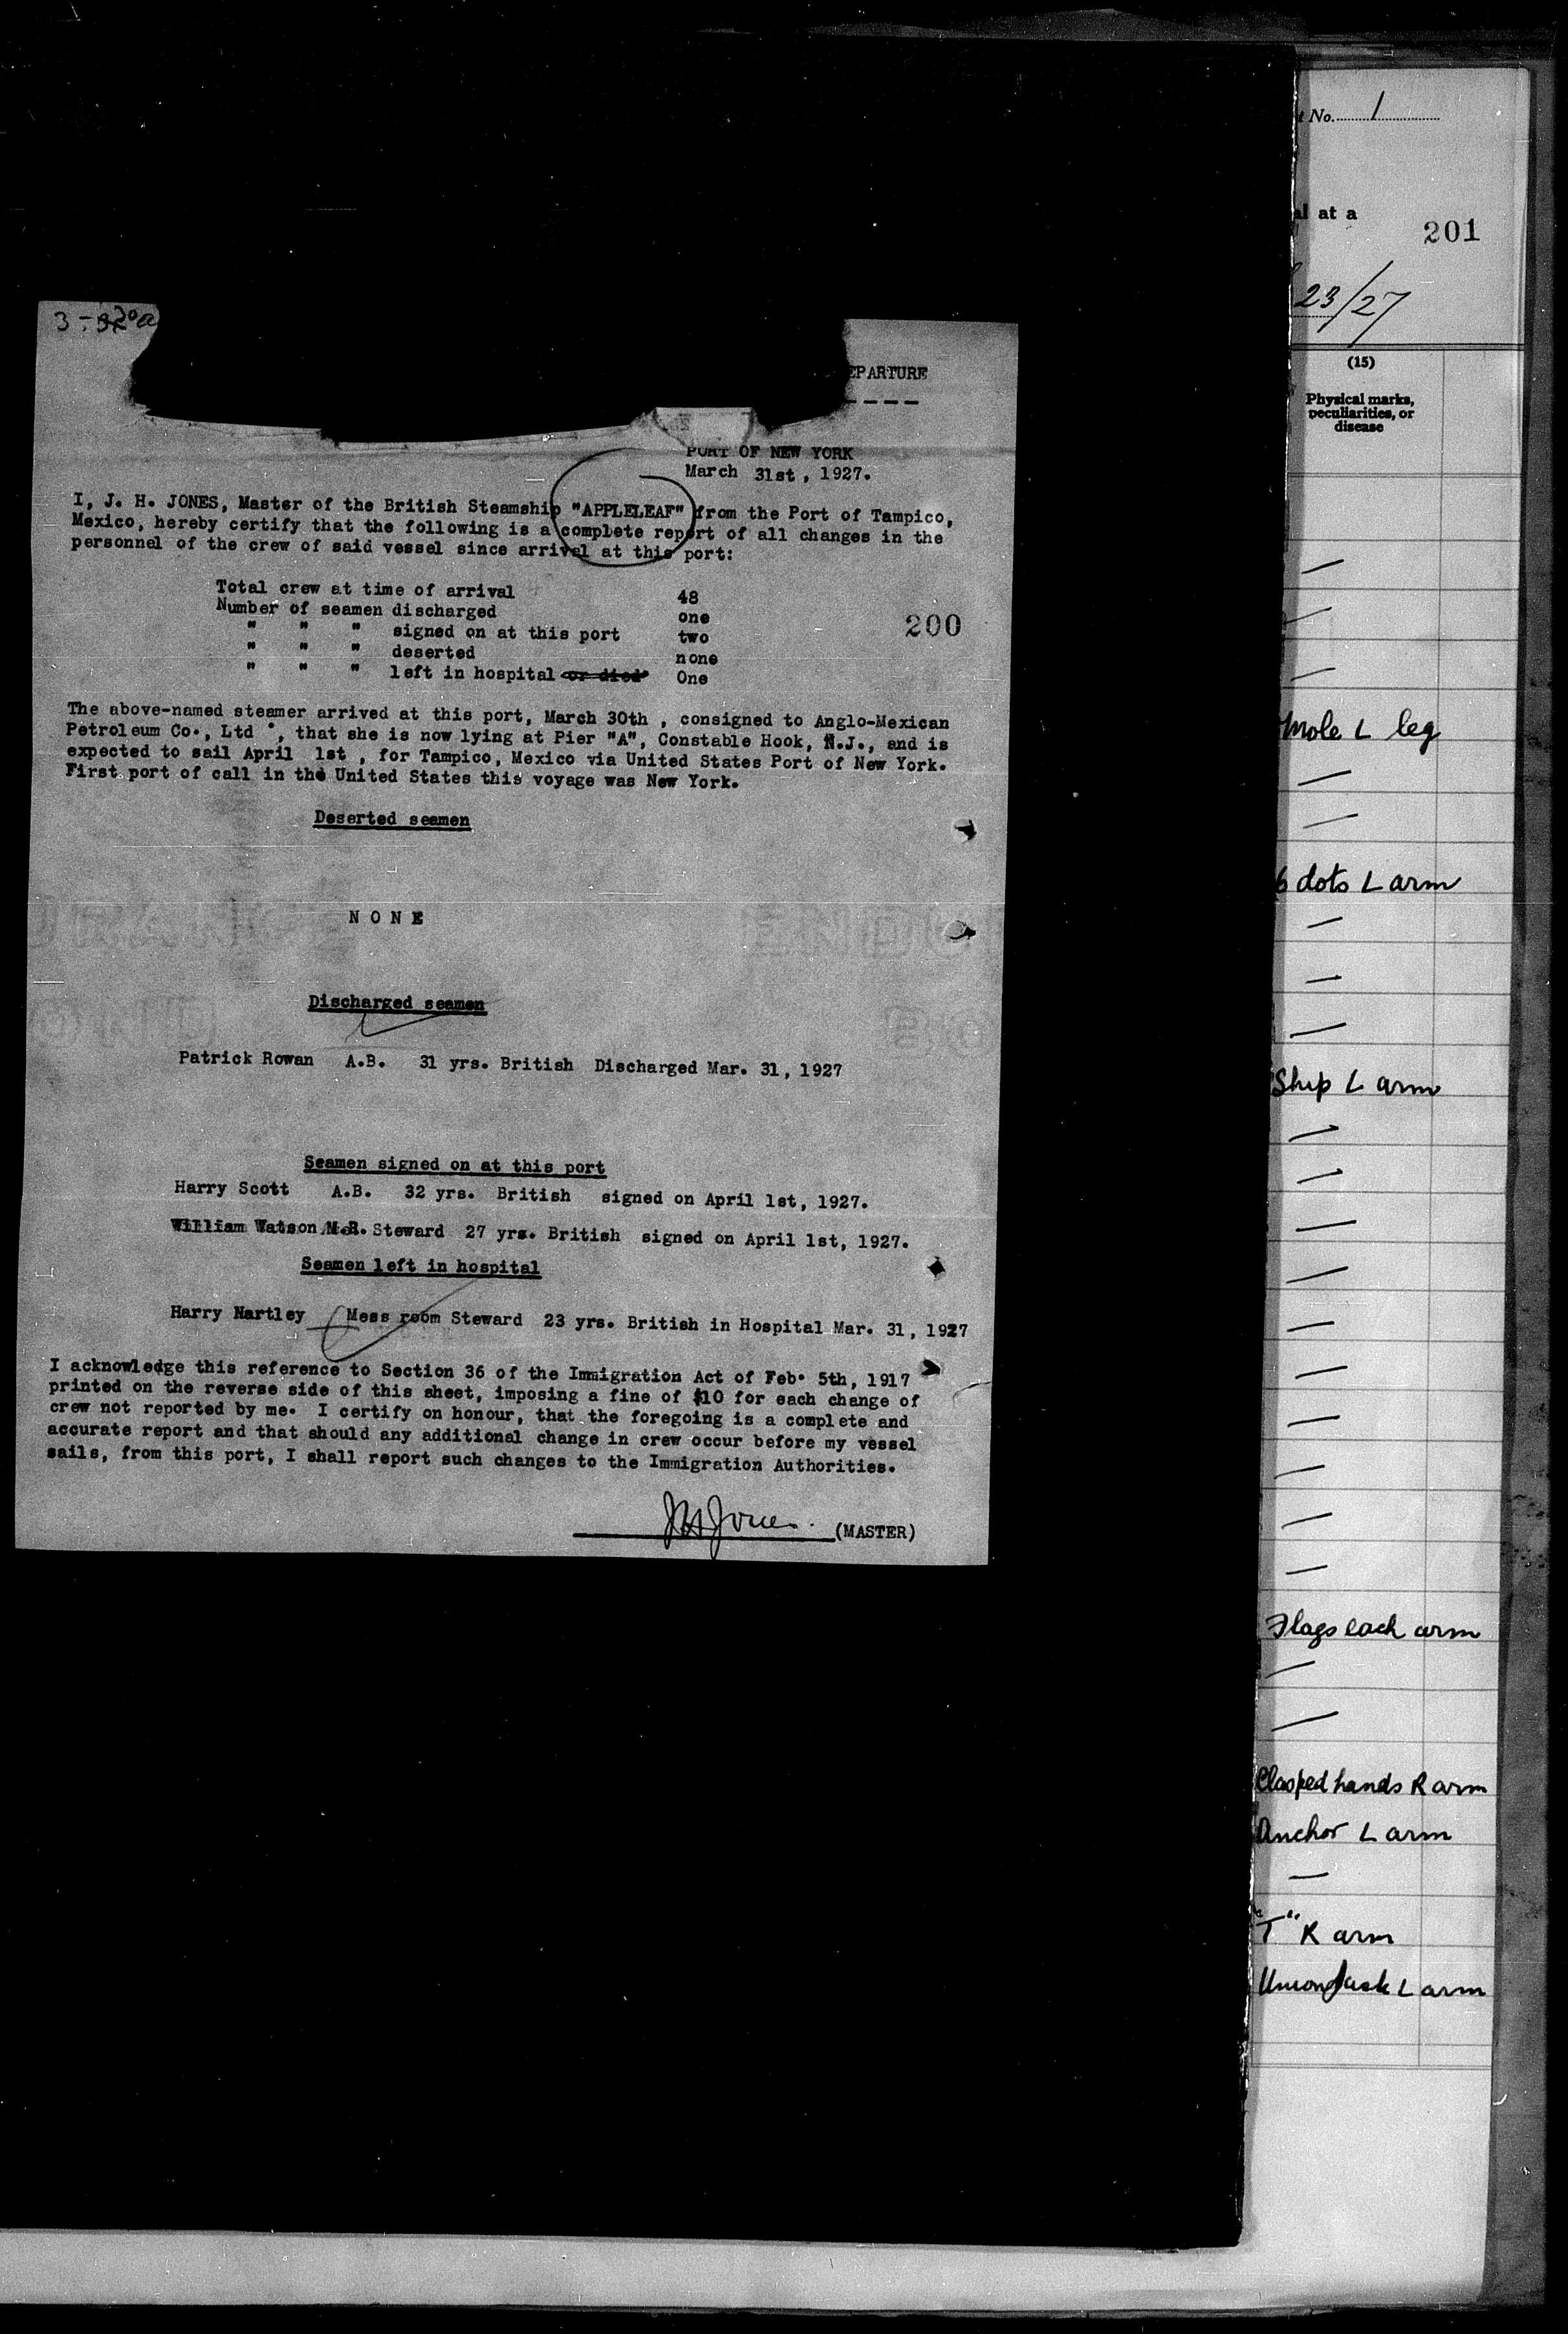 3-30a
EPARTURE
-----
PORT OF NEW YORK
March 31st, 1927.
I, J. H. JONES, Master of the British Steamship "APPLELEAF" from the Port of Tampico,
Mexico, hereby certify that the following is a complete report of all changes in the
personnel of the crew of said vessel since arrival at this port:
Total crew at time of arrival 48
Number of seamen discharged one
" " " signed on at this port two
" " " deserted none
" " " left in hospital or died One
200
The above-named steamer arrived at this port, March 30th , consigned to Anglo-Mexican
Petroleum Co., Ltd , that she is now lying at Pier "A", Constable Hook, N.J., and is
expected to sail April 1st , for Tampico, Mexico via United States Port of New York.
First port of call in the United States this voyage was New York.
Deserted seamen
URANCE ENDU
N O N E
OND BO
Discharged seamen
Patrick Rowan A.B. 31 yrs. British Discharged Mar. 31, 1927
Seamen signed on at this port
Harry Scott A.B. 32 yrs. British signed on April 1st, 1927.
William Watson M.R. Steward 27 yrs. British signed on April 1st, 1927.
Seamen left in hospital
Harry Hartley Mess room Steward 23 yrs. British in Hospital Mar. 31, 1927
I acknowledge this reference to Section 36 of the Immigration Act of Feb. 5th, 1917
printed on the reverse side of this sheet, imposing a fine of $10 for each change of
crew not reported by me. I certify on honour, that the foregoing is a complete and
accurate report and that should any additional change in crew occur before my vessel
sails, from this port, I shall report such changes to the Immigration Authorities.
JH Jones. (MASTER)
t No. 1
al at a
201
23/27
(15)
Physical marks,
peculiarities, or
disease
Mole L leg
6 dots L arm
Ship L arm
Flags each arm
Clasped hands R arm
Anchor L arm
"T" R arm
Union Jack L arm